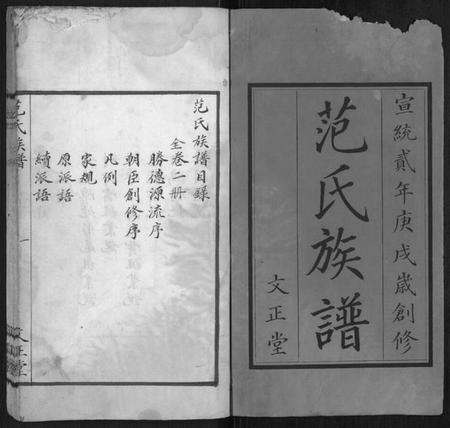 宣統貳年庚戌歲創修
范氏族譜
文正堂
范氏族譜目錄
全卷二冊
勝德源流序
朝臣創修序
凡例
家規
原派語
續派語
范氏族譜
一
文正堂